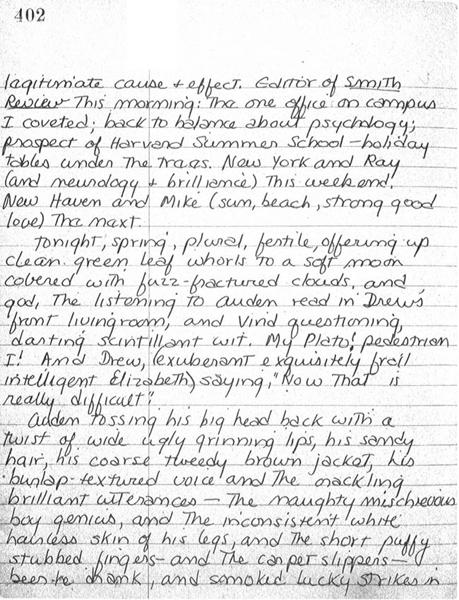 402
legitimate cause + effect. Editor of Smith
Review This morning: The one office on campus
I coveted; back to balance about psychology;
prospect of Harvard Summer School – holiday
tables under The trees. New York and Ray
(and neurology + brilliance) This weekend.
New Haven and Mike (sun, beach, strong good
love) The next.
tonight, spring, plural, fertile, offering up
clean green leaf whorls to a soft moon
covered with fuzz-fractured clouds, and
god, The listening to auden read in Drew's
front livingroom, and vivid questioning,
darting scintillant wit. My Plato! pedestrian
I! And Drew, (exuberant exquisitely frail
intelligent Elizabeth) saying, "Now That is
really difficult".
Auden tossing his big head back with a
twist of wide ugly grinning lips, his sandy
hair, his coarse tweedy brown jacket, his
burlap-textured voice and The crackling
brilliant utterances – The naughty mischievous
boy genius, and The inconsistent white
hairless skin of his legs, and The short puffy
stubbed fingers – and The carpet slippers –
beer he drank, and smoked Lucky Strikes in